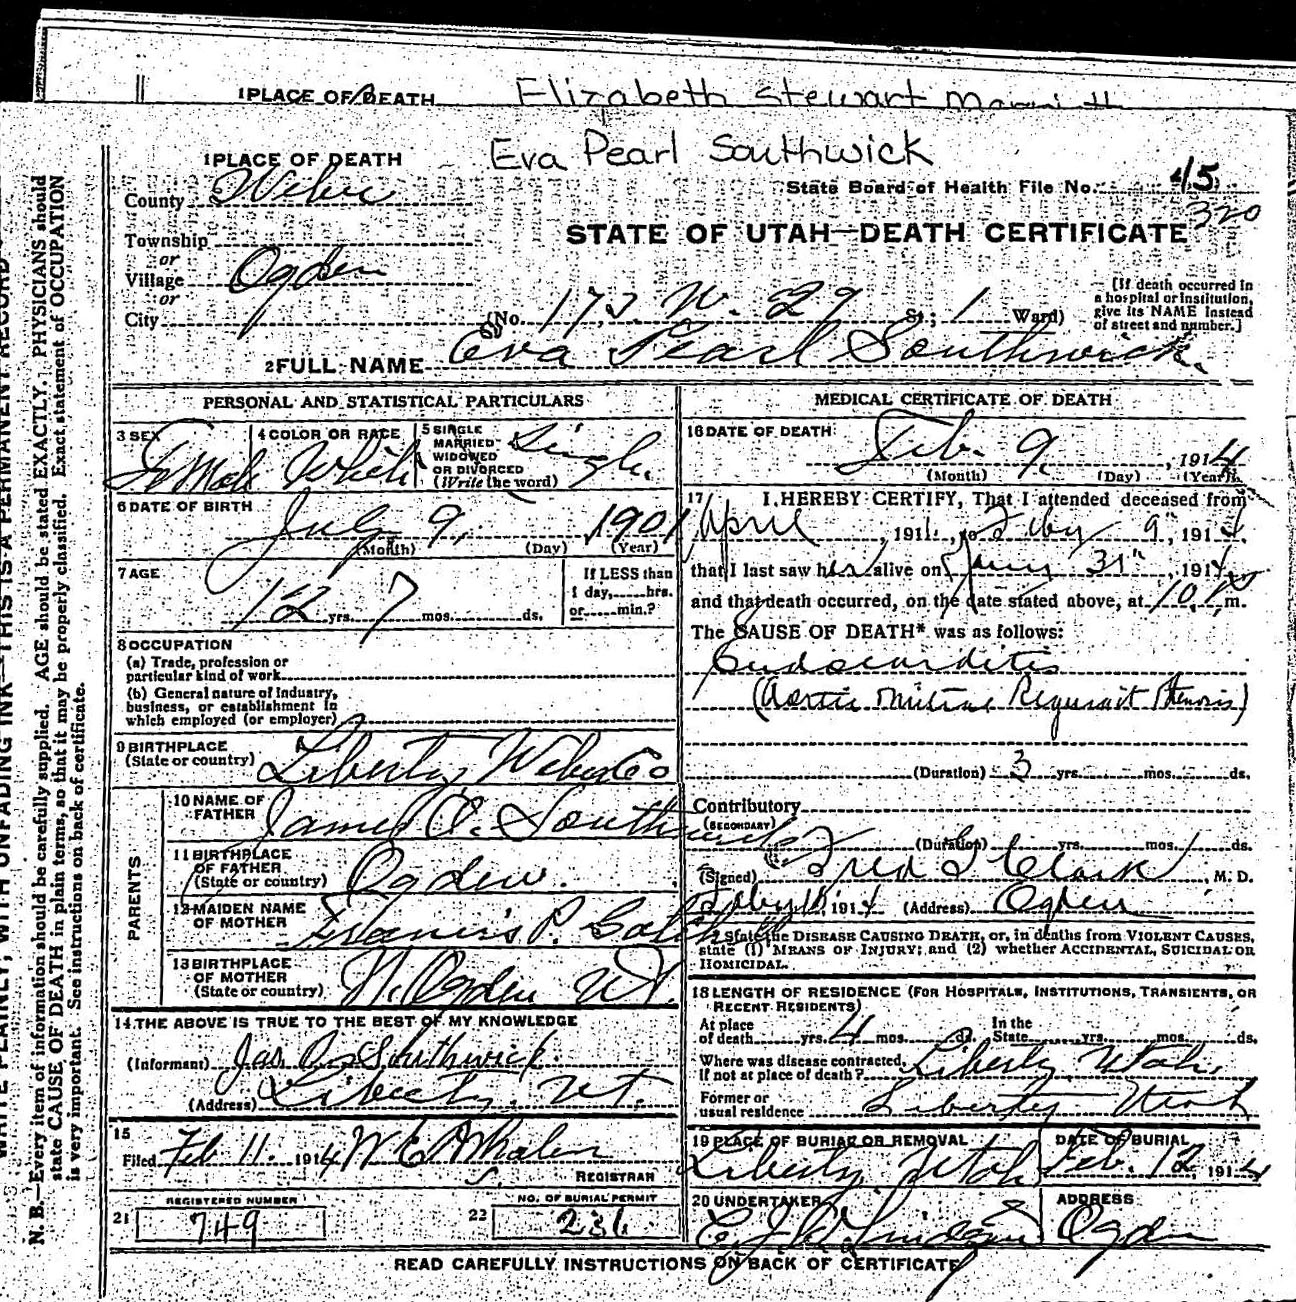 1 PLACE OF DEATH Elizabeth Stewart
1 PLACE OF DEATH Eva Pearl Southwick
County Weber State Board of Health File No. 45
320
STATE OF UTAH—DEATH CERTIFICATE
Township
or
Village Ogden
or
City (No. W. 29 St.; 1 Ward)
[If death occurred in
a hospital or institution,
give its NAME instead
of street and number.]
2 FULL NAME Eva Pearl Southwick
PERSONAL AND STATISTICAL PARTICULARS
3 SEX Female
4 COLOR OR RACE White
5 SINGLE
MARRIED
WIDOWED
OR DIVORCED
(Write the word) Single
6 DATE OF BIRTH July 9, 1901
(Month) (Day) (Year)
7 AGE 12 yrs. 7 mos. ds.
If LESS than
1 day, hrs.
or min.?
8 OCCUPATION
(a) Trade, profession or
particular kind of work
(b) General nature of Industry,
business, or establishment in
which employed (or employer)
9 BIRTHPLACE
(State or country) Liberty, Weber Co
PARENTS
10 NAME OF
FATHER James O. Southwick
11 BIRTHPLACE
OF FATHER
(State or country) Ogden.
12 MAIDEN NAME
OF MOTHER Francis P.
13 BIRTHPLACE
OF MOTHER
(State or country) N. Ogden Ut.
14 THE ABOVE IS TRUE TO THE BEST OF MY KNOWLEDGE
(Informant) Jas. O. Southwick
(Address) Liberty, Ut.
15
Filed Feb 11. 1914 W E Whalen
REGISTRAR
REGISTERED NUMBER
21 749
NO. OF BURIAL PERMIT
22 236
MEDICAL CERTIFICATE OF DEATH
16 DATE OF DEATH
Feb. 9, 1914
(Month) (Day) (Year)
17 I HEREBY CERTIFY, That I attended deceased from
April, 1911, to Feby 9", 1914,
that I last saw her alive on Jany 31", 1914,
and that death occurred, on the date stated above, at 10 P m.
The CAUSE OF DEATH* was as follows:
Endocarditis
(Aortic Mitral Regurgit Stenosis)
(Duration) 3 yrs. mos. ds.
Contributory
(SECONDARY)
(Duration) yrs. mos. ds.
(Signed) Fred Clark, M. D.
Feby 10, 1914 (Address) Ogden
* State the DISEASE CAUSING DEATH, or, in deaths from VIOLENT CAUSES,
state (1) MEANS OF INJURY; and (2) whether ACCIDENTAL, SUICIDAL OR
HOMICIDAL.
18 LENGTH OF RESIDENCE (FOR HOSPITALS, INSTITUTIONS, TRANSIENTS, OR
RECENT RESIDENTS)
At place
of death yrs. 4 mos. ds. In the
State yrs. mos. ds.
Where was disease contracted,
If not at place of death? Liberty Utah.
Former or
usual residence Liberty Utah
19 PLACE OF BURIAL OR REMOVAL
Liberty, Utah
DATE OF BURIAL
Feb. 12 1914
20 UNDERTAKER
ADDRESS
Ogden
READ CAREFULLY INSTRUCTIONS ON BACK OF CERTIFICATE
WRITE PLAINLY, WITH UNFADING INK—THIS IS A PERMANENT RECORD
N. B.—Every item of information should be carefully supplied. AGE should be stated EXACTLY. PHYSICIANS should
state CAUSE OF DEATH in plain terms, so that it may be properly classified. Exact statement of OCCUPATION
is very important. See instructions on back of certificate.